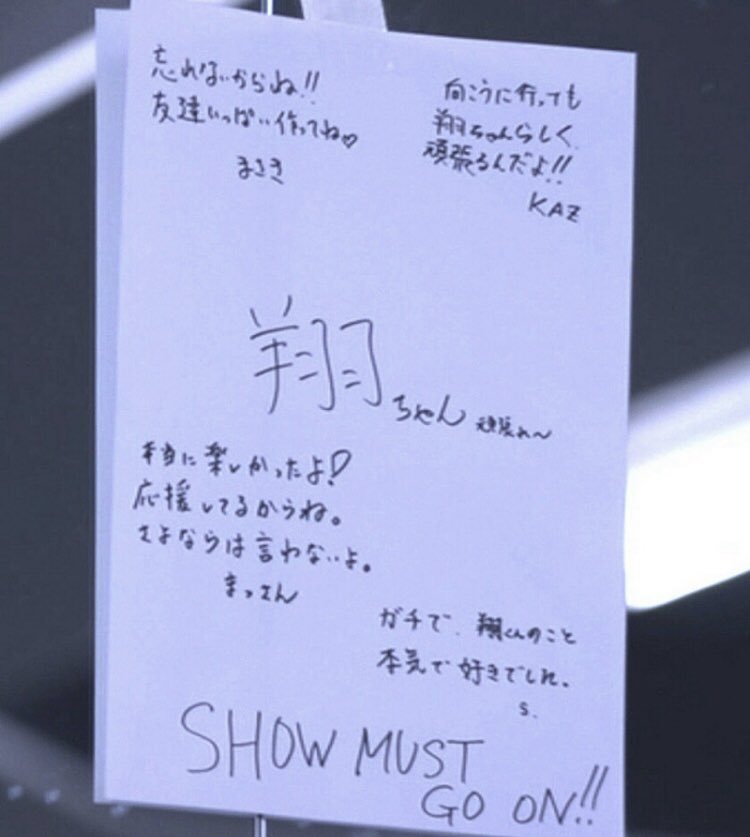 忘れないからね!!
友達いっぱい作ってね♡
まさき
向こうに行っても
翔ちゃんらしく
頑張るんだよ!!
KAZ
翔ちゃん 頑張れ〜
本当に楽しかったよ!
応援してるからね。
さよならは言わないよ。
まっさん
ガチで、翔くんのこと
本気で好きでした。
S.
SHOW MUST
GO ON!!